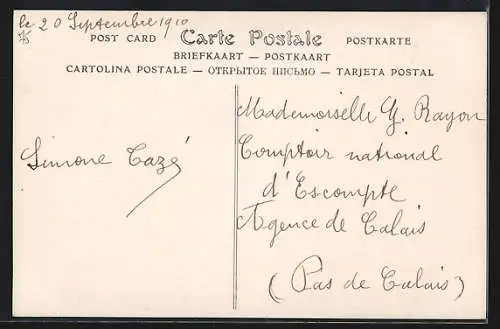 le 20 Septembre 1910
POST CARD Carte Postale POSTKARTE
BRIEFKAART — POSTKAART
CARTOLINA POSTALE — ОТКРЫТОЕ ПИСЬМО — TARJETA POSTAL
Simone Cazé
Mademoiselle G. Rayon
Comptoir national
d'Escompte
Agence de Calais
(Pas de Calais)